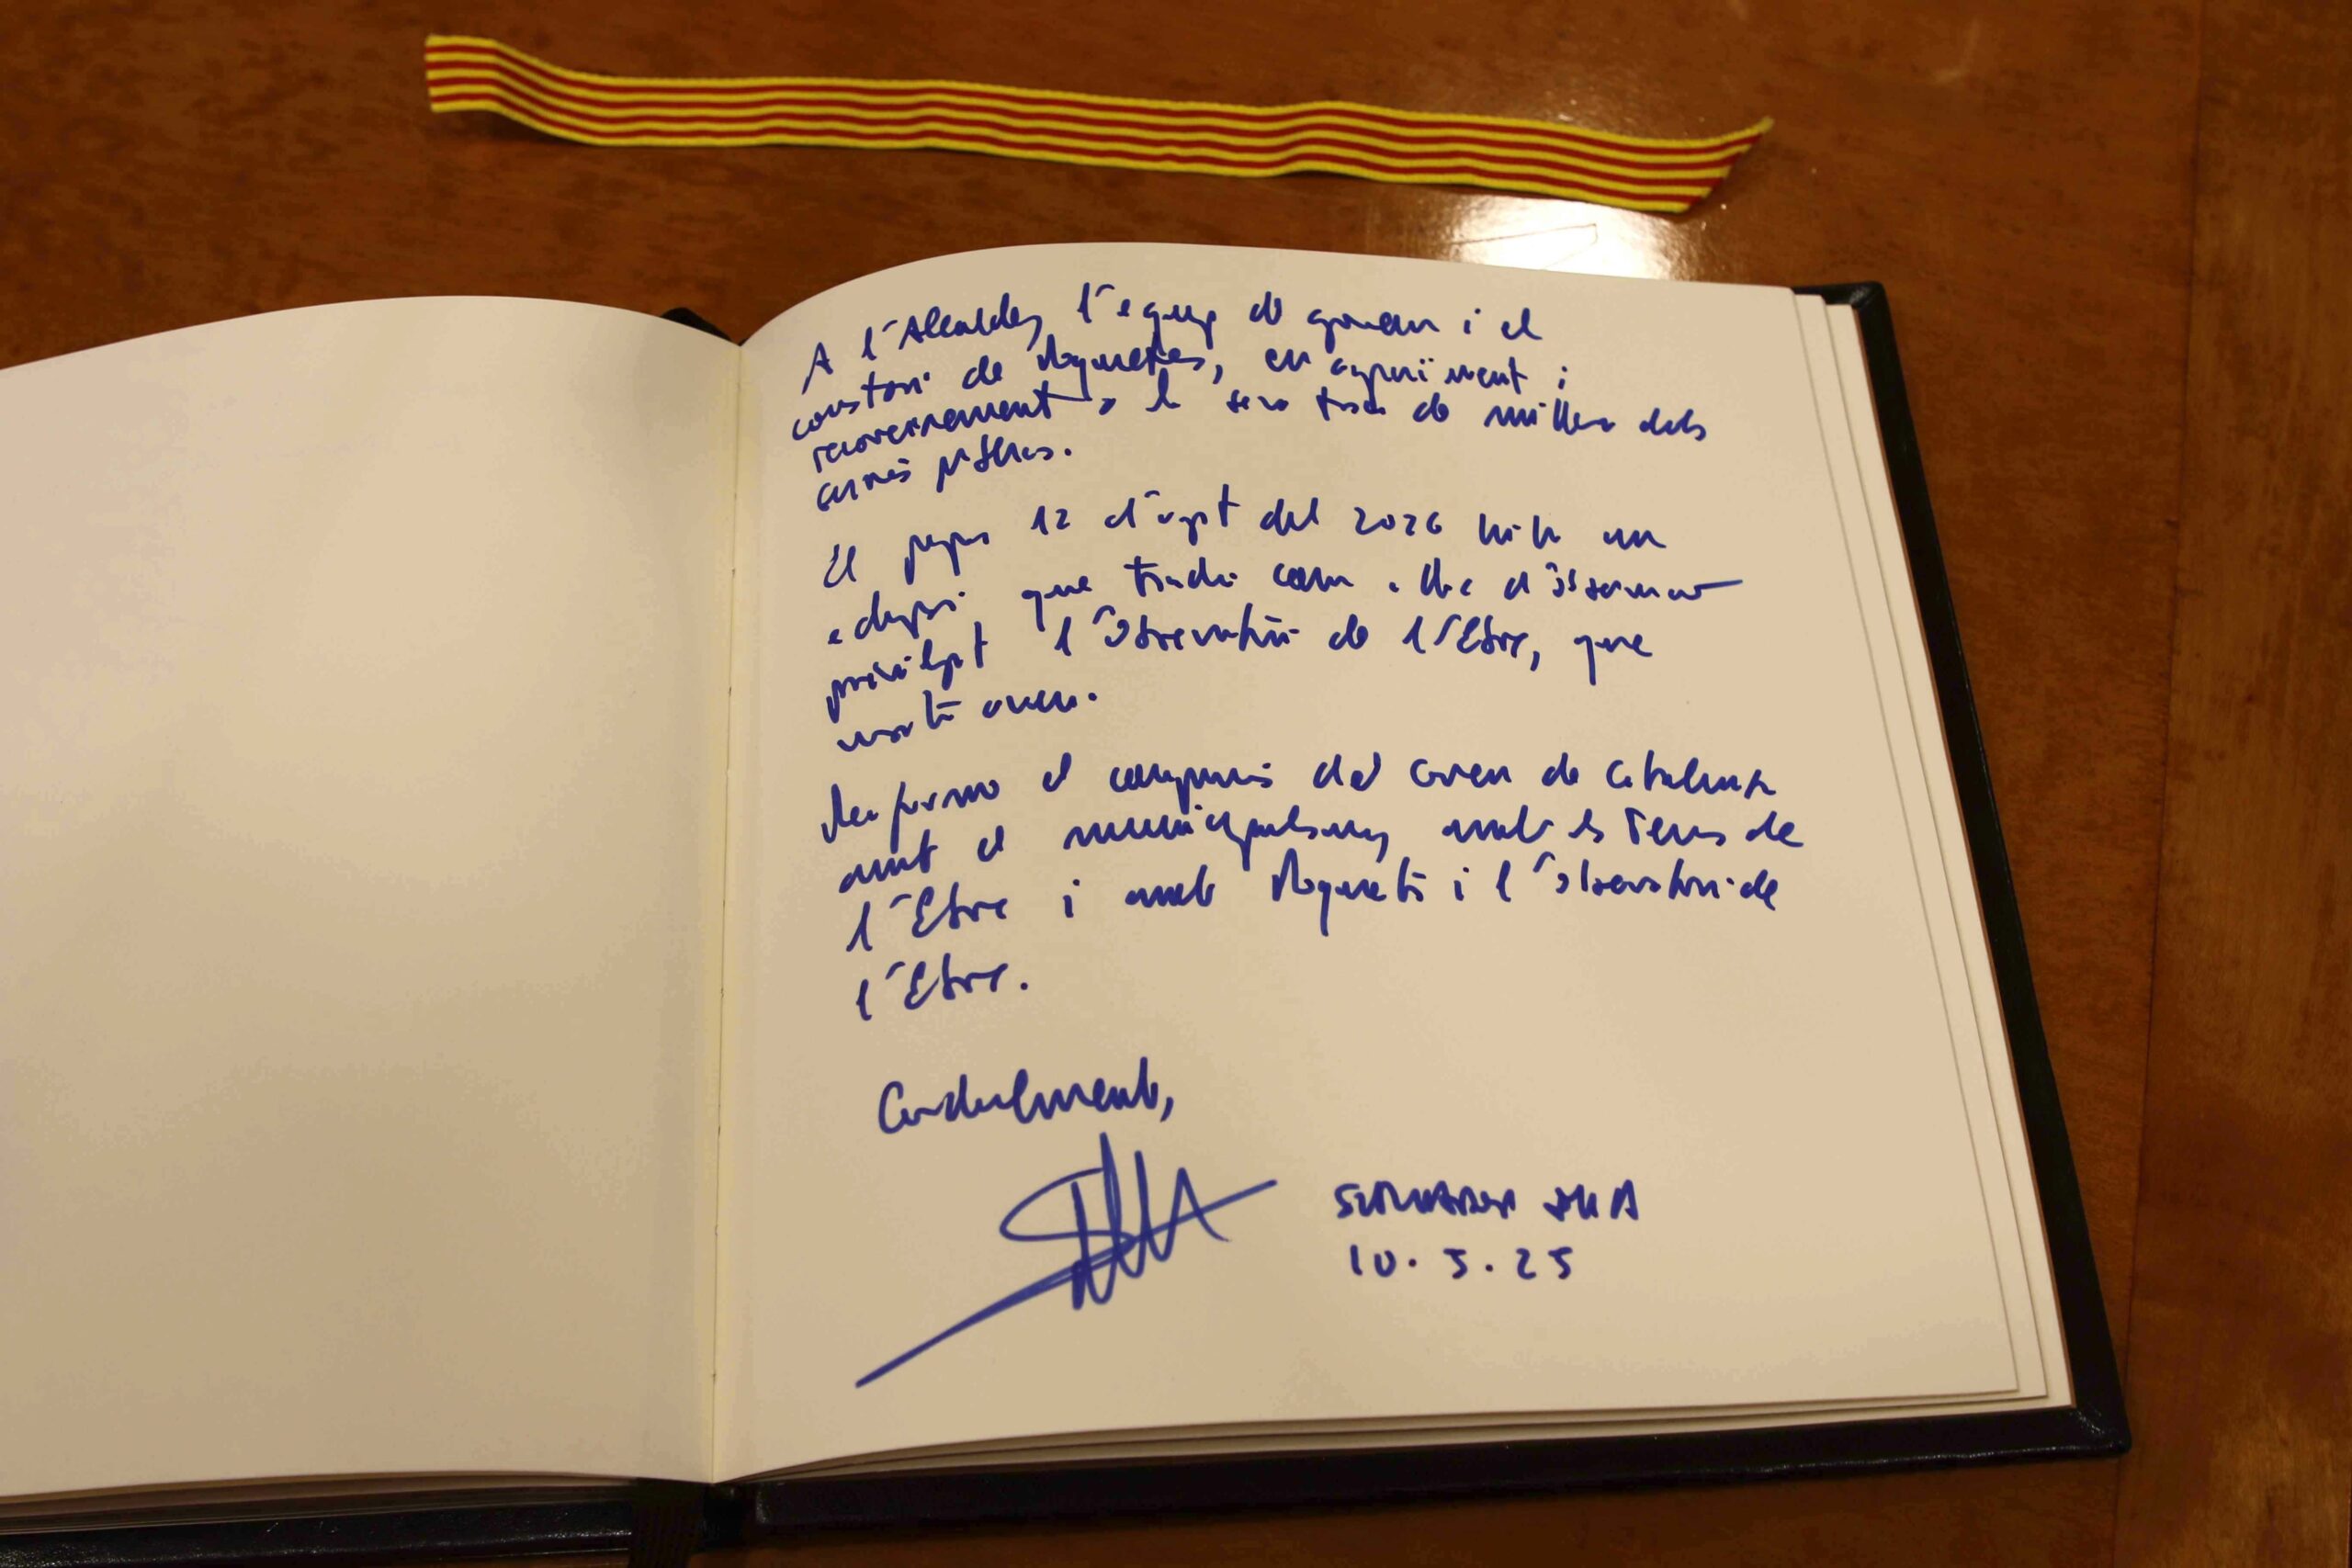 A l'Alcalde, l'equip de govern i el
consistori de Roquetes, en agraïment i
reconeixement a la seva tasca de millora dels
serveis públics.
El proper 12 d'agost del 2026 hi ha un
eclipsi que tindrà com a lloc d'observació
privilegiat l'Observatori de l'Ebre, que
avui.
Reafirmo el compromís del Govern de Catalunya
amb el municipalisme, amb les Terres de
l'Ebre i amb Roquetes i l'Observatori de
l'Ebre.
Cordialment,
SALVADOR ILLA
10.5.25